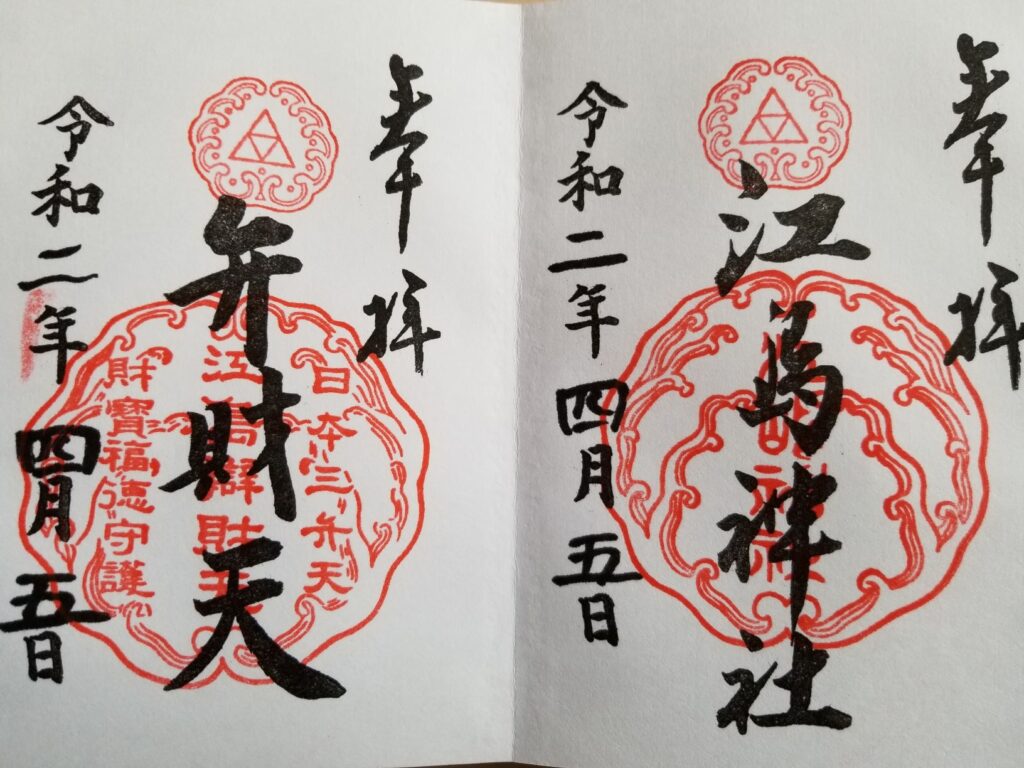 奉拝
江島神社
令和二年四月五日
奉拝
弁財天
日本三弁天
江島辯財天
財寶福徳守護
令和二年四月五日